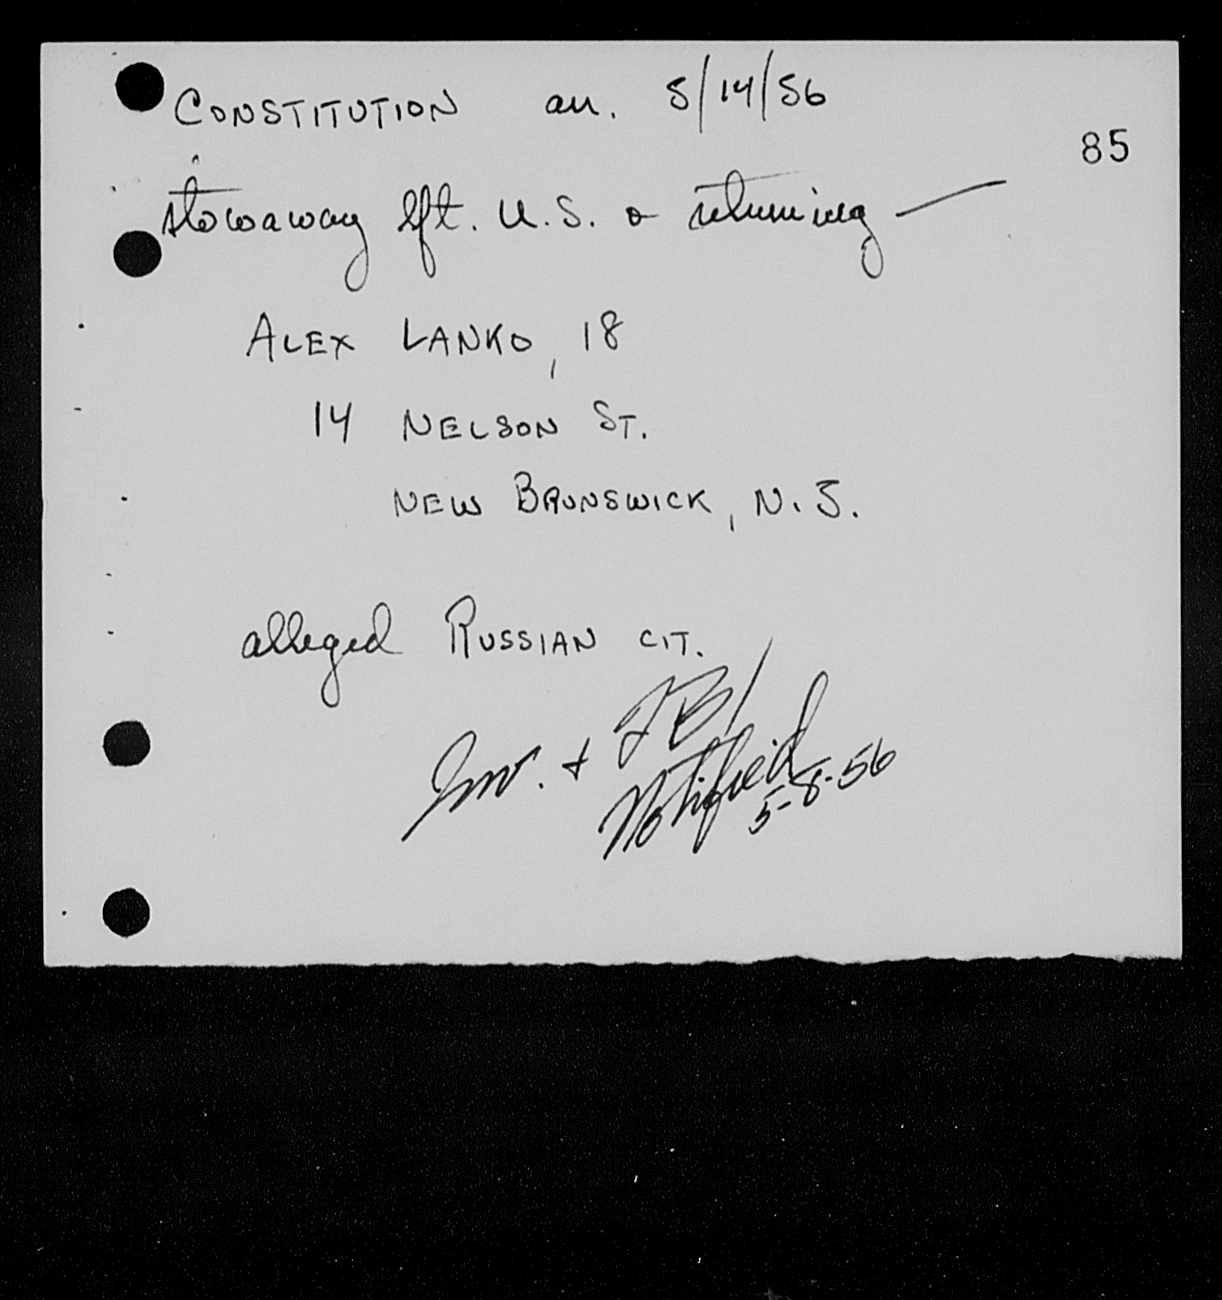 CONSTITUTION arr. 5/14/56
85
stowaway lft. U.S. & returning —
ALEX LANKO, 18
14 NELSON ST.
NEW BRUNSWICK, N.J.
alleged RUSSIAN CIT.
Inv. + FBI
Notified
5-8-56